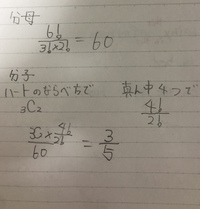 分母
6! / 3!×2! = 60
分子
ハートのならべちで 真ん中4つで
₃C₂ 4! / 2!
₃C₂ × 4!/2! / 60 = 3/5